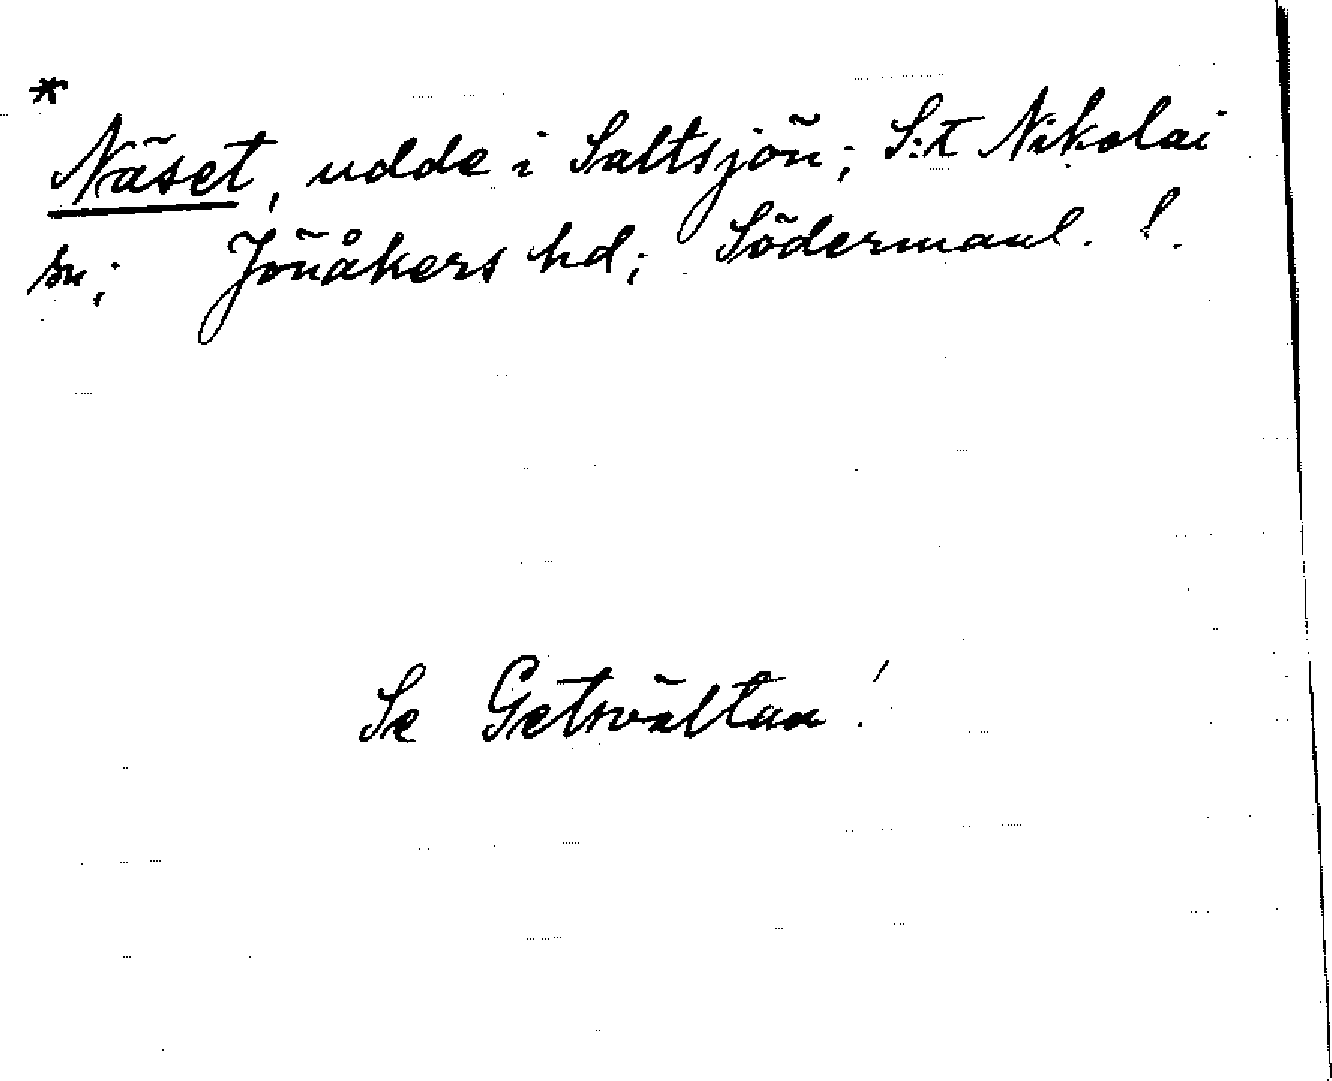 *
Näset, udde i Saltsjön; S:t Nikolai
sn; Jönåkers hd; Södermanl. l.
Se Getsvältan!